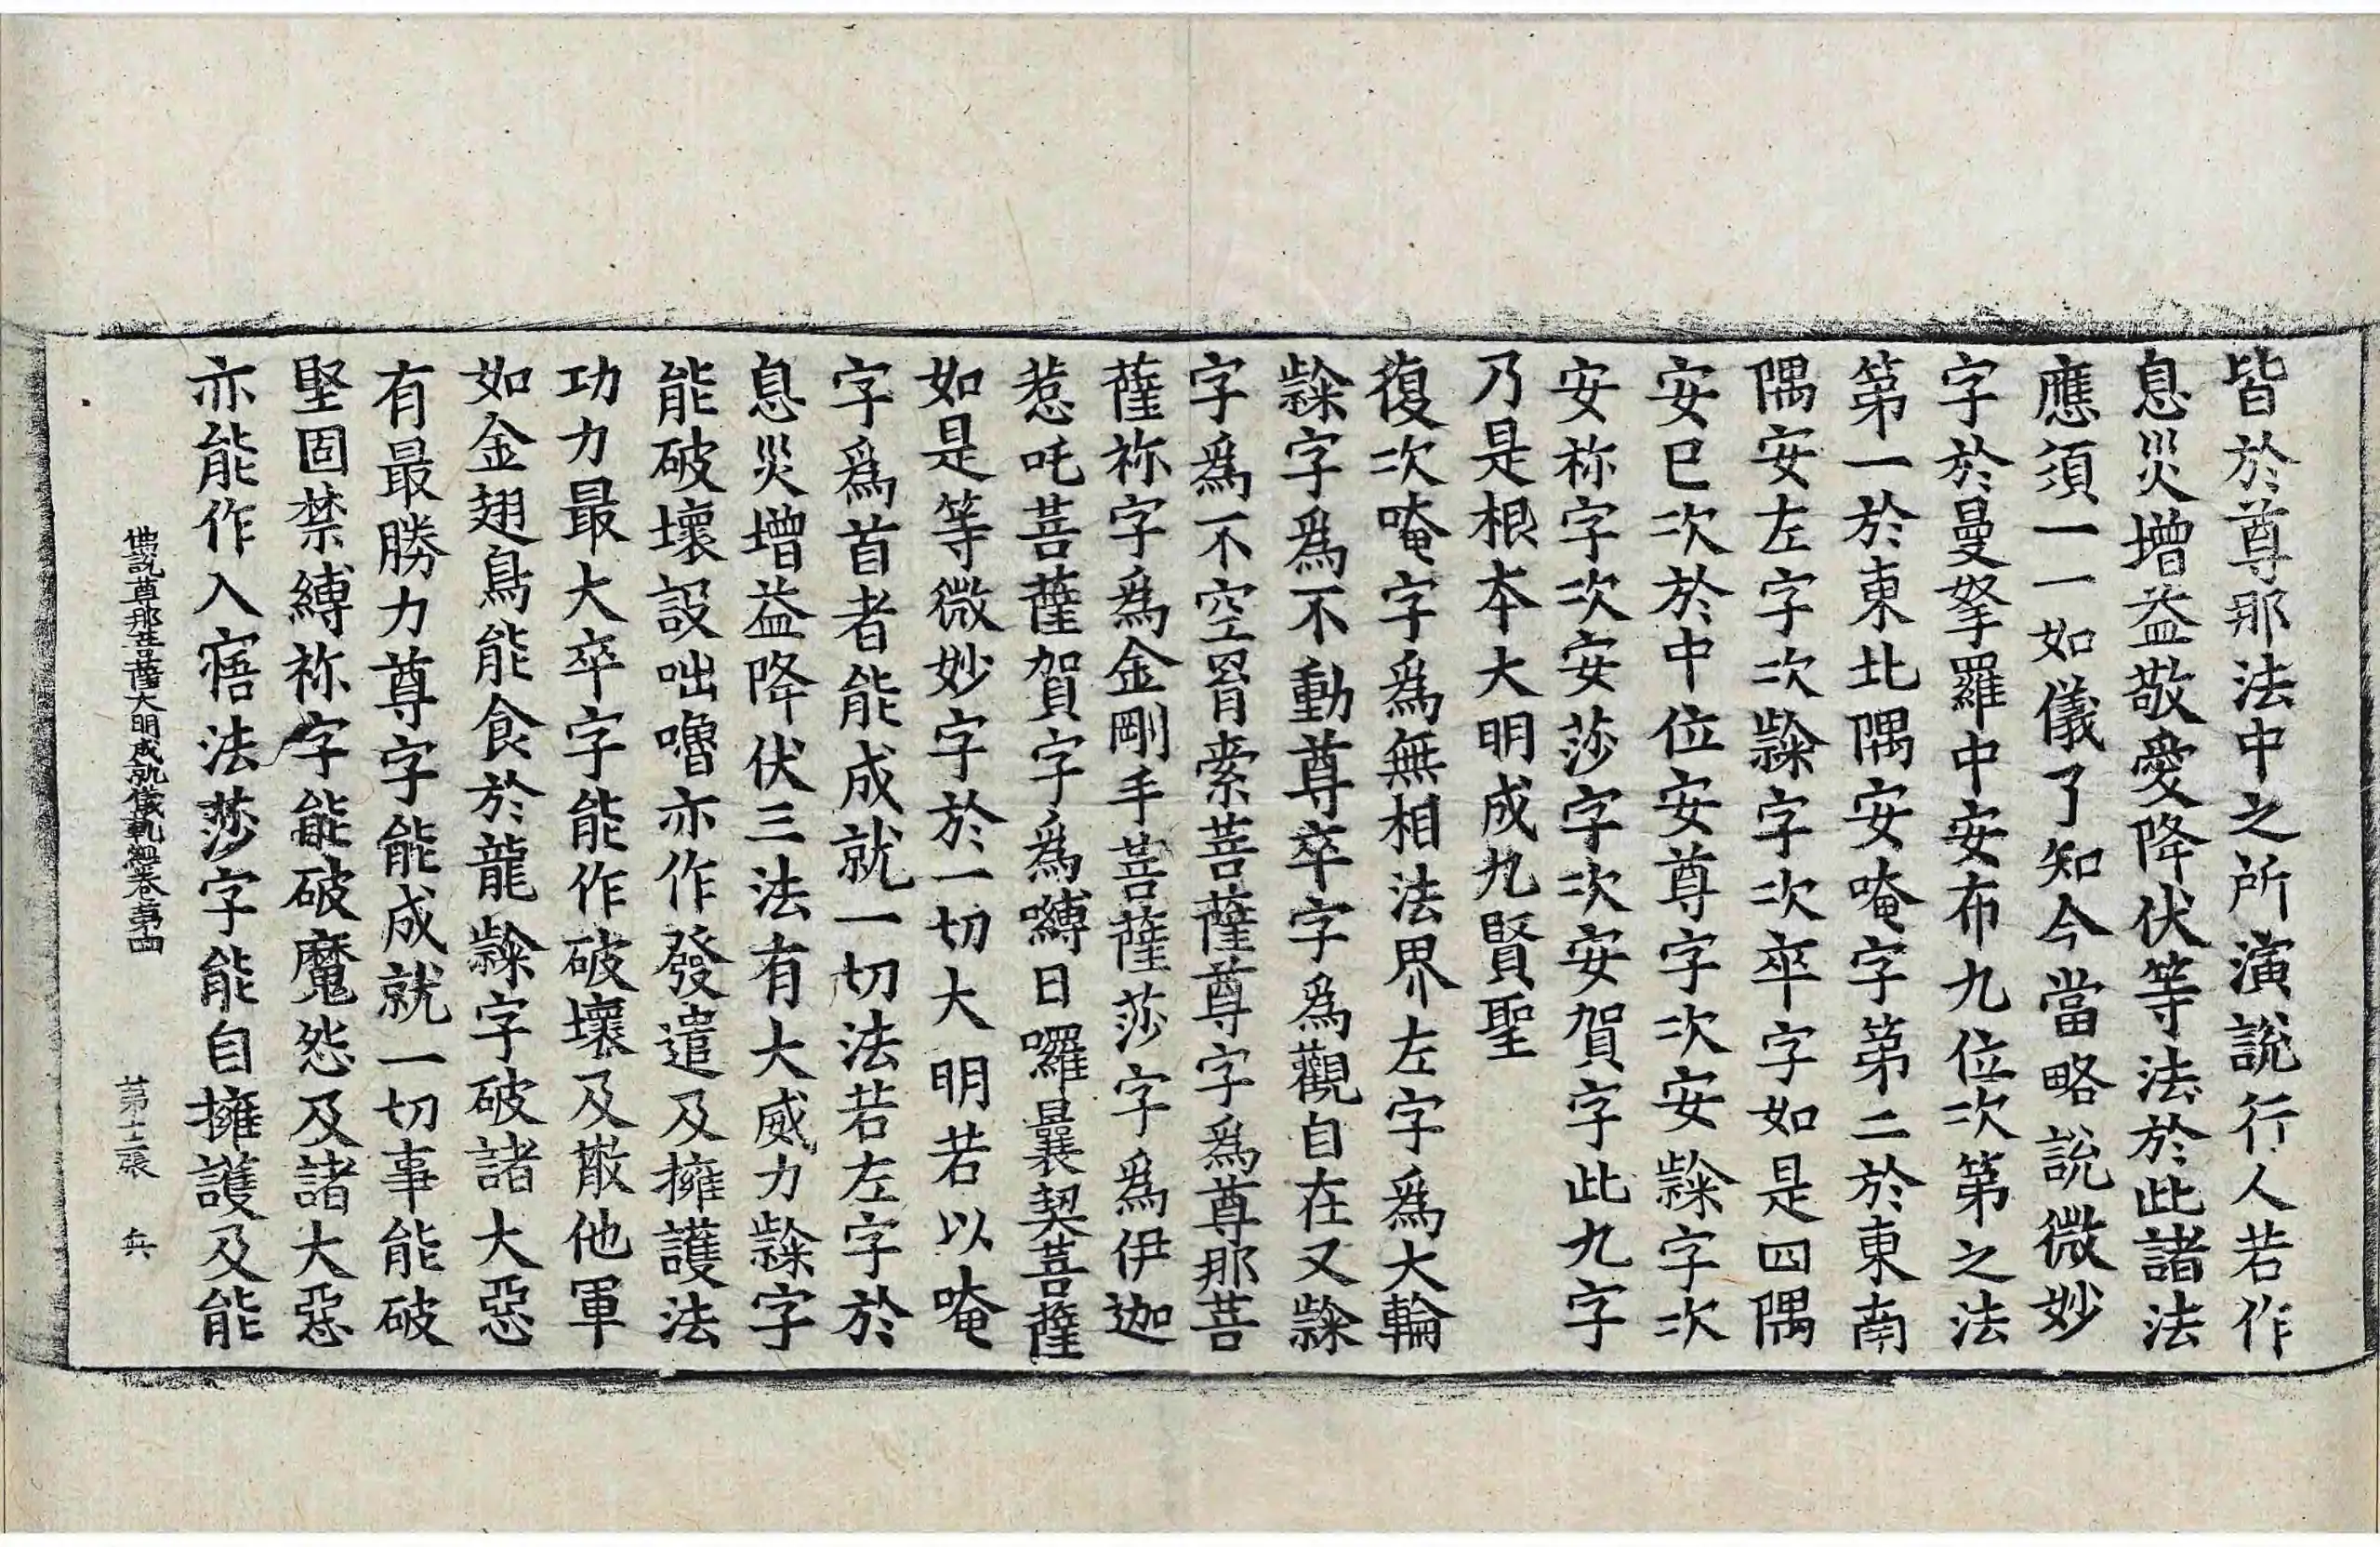 皆於尊那法中之所演說行人若作
息災增益敬愛降伏等法於此諸法
應須一一如儀了知今當略說微妙
字於曼拏羅中安布九位次第之法
第一於東北隅安唵字第二於東南
隅安左字次隸字次卒字如是四隅
安已次於中位安尊字次安隸字次
安祢字次安莎字次安賀字此九字
乃是根本大明成九賢聖
復次唵字爲無相法界左字爲大輪
隸字爲不動尊卒字爲觀自在又隸
字爲不空罥索菩薩尊字爲尊那菩
薩祢字爲金剛手菩薩莎字爲伊迦
惹吒菩薩賀字爲嚩日囉曩契菩薩
如是等微妙字於一切大明若以唵
字爲首者能成就一切法若左字於
息災增益降伏三法有大威力隸字
能破壞設咄嚕亦作發遣及擁護法
功力最大卒字能作破壞及散他軍
如金翅鳥能食於龍隸字破諸大惡
有最勝力尊字能成就一切事能破
堅固禁縛祢字能破魔怨及諸大惡
亦能作入寤法莎字能自擁護及能
佛說尊那菩薩大明成就儀軌經卷第四　第十二張　兵